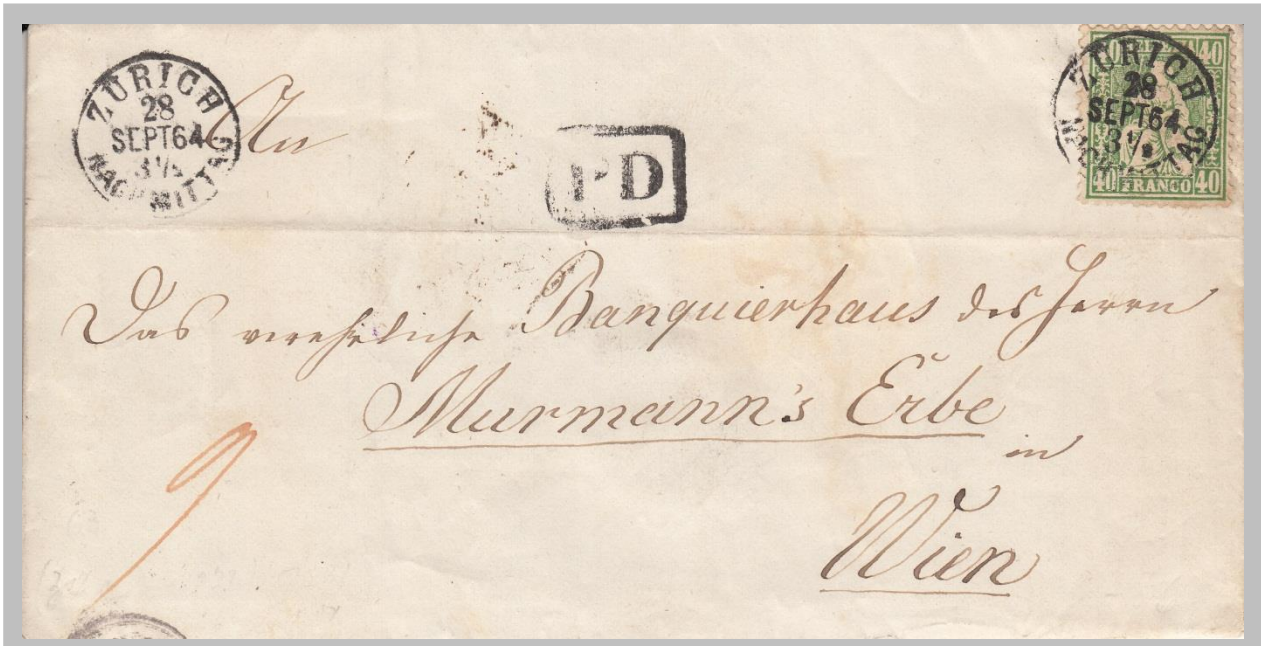 ZÜRICH
28
SEPT 64
3½
NACHMITTAG
An
PD
ZÜRICH
28
SEPT 64
3½
NACHMITTAG
40 40
40 FRANCO 40
Das verehrliche Banquierhaus des Herrn
Murmann's Erbe
in
Wien
9